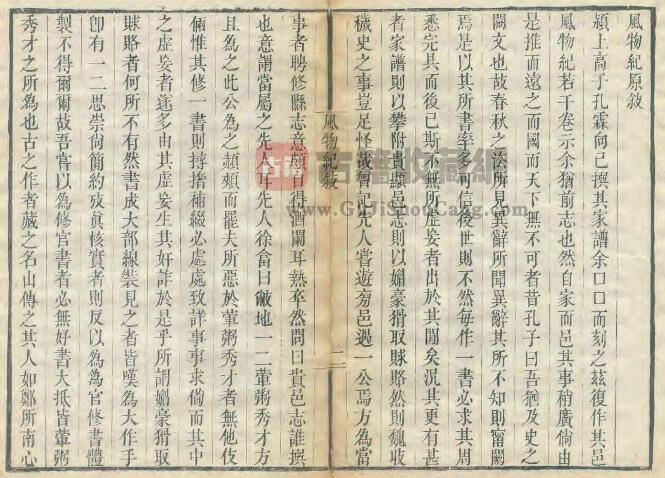 風物紀原敘
潁上高子孔霖向已撰其家譜余口口而刻之茲復作其邑
風物紀若干卷示余猶前志也然自家而邑其事稍廣倘由
是推而遠之而國而天下無不可者昔孔子曰吾猶及史之
闕文也故春秋之法所見異辭所聞異辭其所不知則甯闕
焉是以其所書率多可信後世則不然每作一書必求其周
悉完具而後已斯不無所虛妄者出於其間矣況其更有甚
者家譜則以攀附貴顯邑志則以媚豪猾取賕賂然則魏收
穢史之事豈足怪哉曾記先人嘗遊旁邑過一公焉方為當
風物紀敘
二
事者聘修縣志意頗自得酒闌耳熱卒然問曰貴邑志誰撰
也意謂當屬之先人耳先人徐會曰敝地一二葷粥秀才方
且為之此公為之頳頰而罷夫所惡於葷粥秀才者無他伎
倆惟其修一書則撏撦補綴必處處致詳事事求備而其中
之虛妄者遂多由其虛妄生其奸詐於是乎所謂媚豪猾取
賕賂者何所不有然書成大部線裝見之者皆嘆為大作手
卽有一二思崇尙簡約攷眞核實者則反以為為官修書體
製不得爾爾故吾嘗以為修官書者必無好書大抵皆葷粥
秀才之所為也古之作者藏之名山傳之其人如鄭所南心
古籍收藏網
www.GuJiShouCang.com